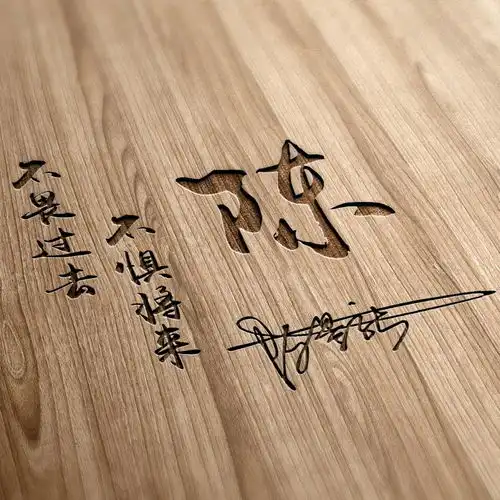 陈
不畏过去
不惧将来